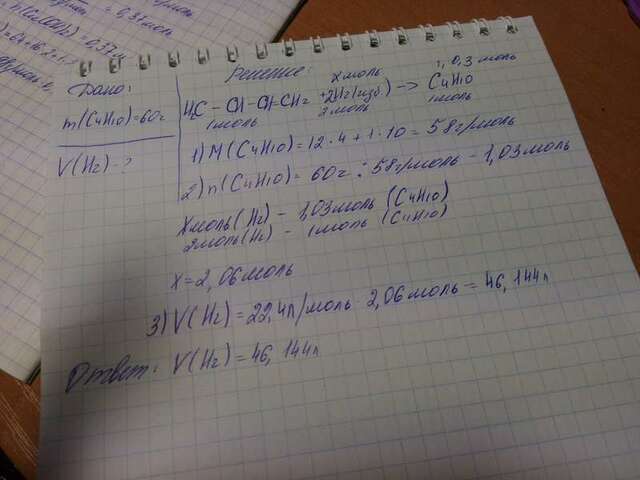 = 0,37 моль
Дано:
m(C4H10)=60г
V(H2)-?
Решение:
x моль
1,03 моль
H2C - CH - CH - CH2 + 2H2(изб) -> C4H10
1моль 2 моль 1моль
1) M(C4H10) = 12·4+1·10=58г/моль
2) n(C4H10) = 60г : 58г/моль - 1,03моль
Xмоль(H2) - 1,03моль (C4H10)
2моль(H2) - 1моль (C4H10)
x=2,06моль
3) V(H2)=22,4л/моль · 2,06моль = 46,144л
Ответ: V(H2)=46,144л